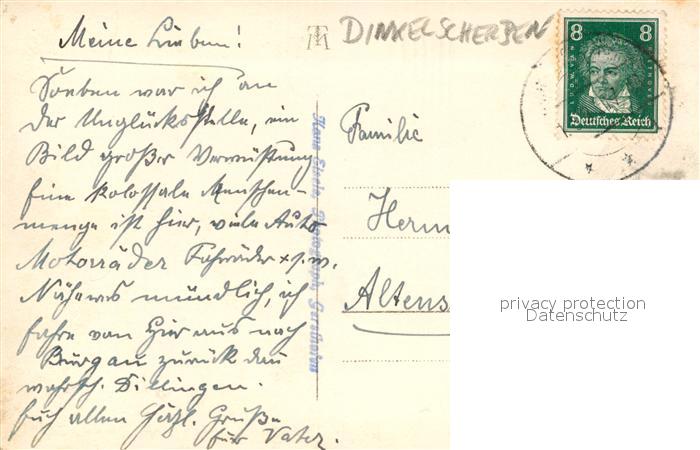 Meine Lieben!
DINKELSCHERBEN
Soeben war ich an
der Unglücksstelle, ein
Bild großer Verwüstung
Eine kolossale Menschen-
menge ist hier, viele Auto
Motorräder Fahrräder u.s.w.
Näheres mündlich, ich
fahre von hier aus nach
Burgau zurück dan
wahrsch. Dillingen.
Euch allen herzl. Grüße
Eur Vater.
Hans Eisele, Photograph, Gersthofen
8 8
LUDWIG VAN
BEETHOVEN
Deutsches Reich
Familie
Herm
Altens
privacy protection
Datenschutz